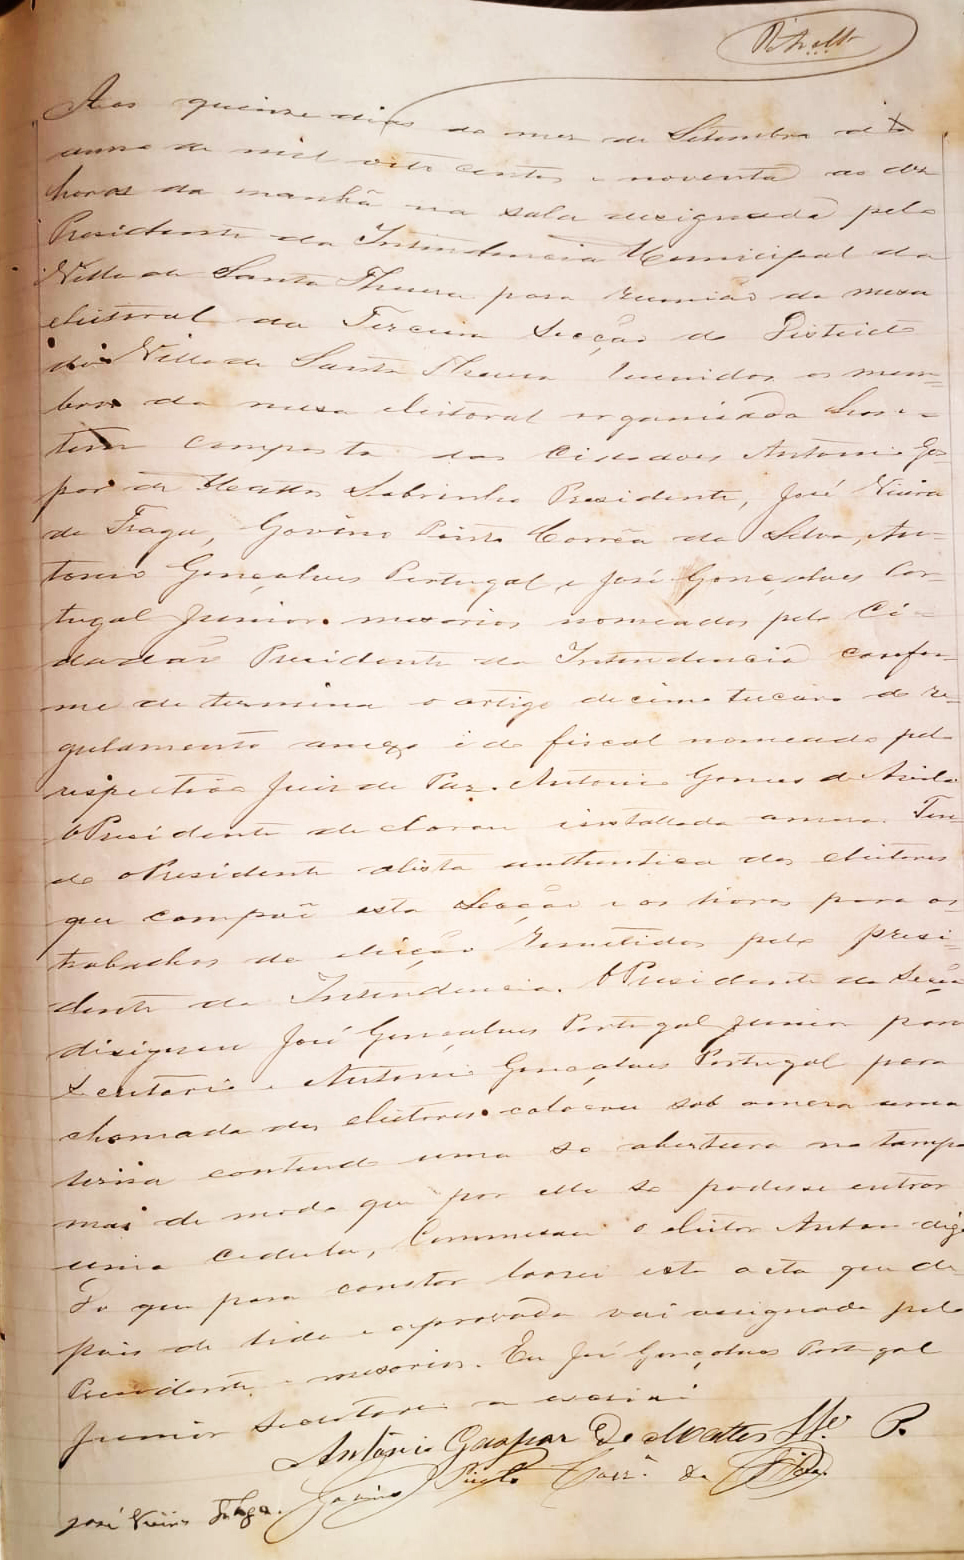 Aos quinze dias do mez de Setembro do
anno de mil oito centos e noventa ao dez
horas da manhã na sala designada pelo
Presidente da Intendencia Municipal da
Villa de Santa Thereza para reunião da meza
eleitoral da Terceira Secção do Districto
da Villa de Santa Thereza reunidos os mem-
bros da meza eleitoral organisada hon-
tem composta dos Cidadoes Antonio Gas-
par de Mattos Sobrinho Presidente, José Vieira
de Fraga, Govino Pinto Corrêa da Silva, An-
tonio Gonçalves Portugal e José Gonçalves Por-
tugal Junior mesarios nomeados pelo Ci-
dadão Presidente da Intendencia confor-
me de termina o artigo decimo terceiro do re-
gulamento anexo e do fiscal nomeado pelo
respectivo Juiz de Paz. Antonio Gomes d Avila
O Presidente declarou installada a meza. Ten-
do o Presidente alista authentica dos eleitores
que compoê esta Secção e os livros para os
trabalhos da eleição remetidos pelo presi-
dente da Intendencia. O Presidente da Secção
disignou José Gonçalves Portugal Junior para
Secretario e Antonio Gonçalves Portugal para
chamada dos eleitores colocou sob a meza uma
contendo uma so abertura na tampa
mas de modo que por ella so podesse entrar
uma cedula, Commesou o eleitor Anton digo
Do que para constar lavrei esta acta que de
pois de lida e aprovada vai assignada pelo
Presidente e mesarios. Eu José Gonçalves Portugal
Junior Secretario a escrivi
Antonio Gaspar De Mattos Sbº P.
José Vieira Fraga. Govino Pinto Corrª da Silva